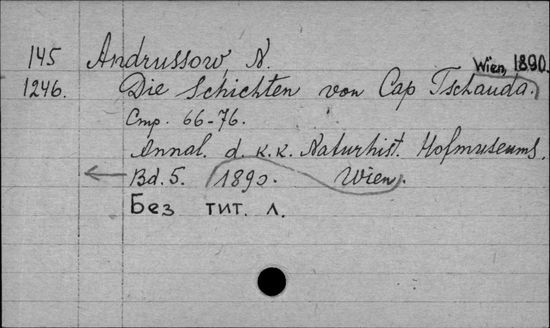 145 Andrussow, N.
Wien, 1890.
1246. Die Schichten von Cap Tschauda.
Стр. 66-76.
Annal. d. k. k. Naturhist. Hofmuseums.
Bd. 5. 1890. Wien.
Без тит. л.